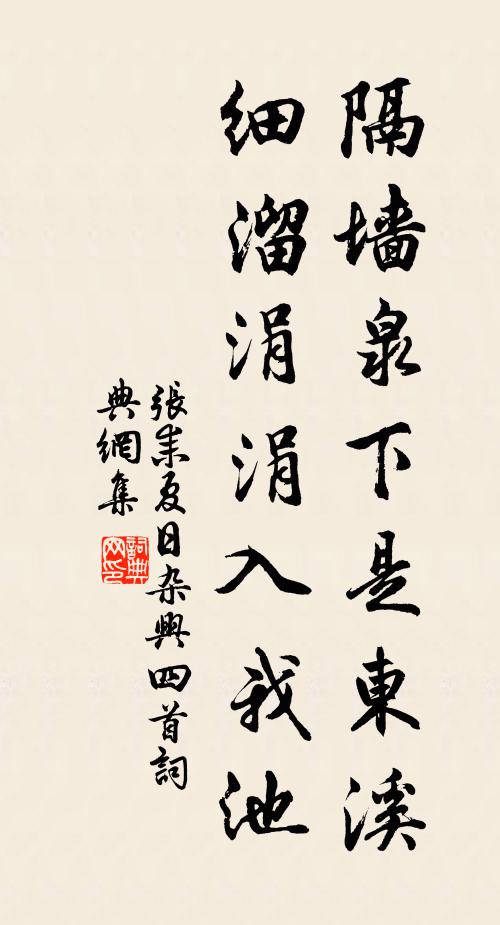 隔墙泉下是東溪
细溜涓涓入我池
張耒夏日杂興四首詞
典網集
詞典网印